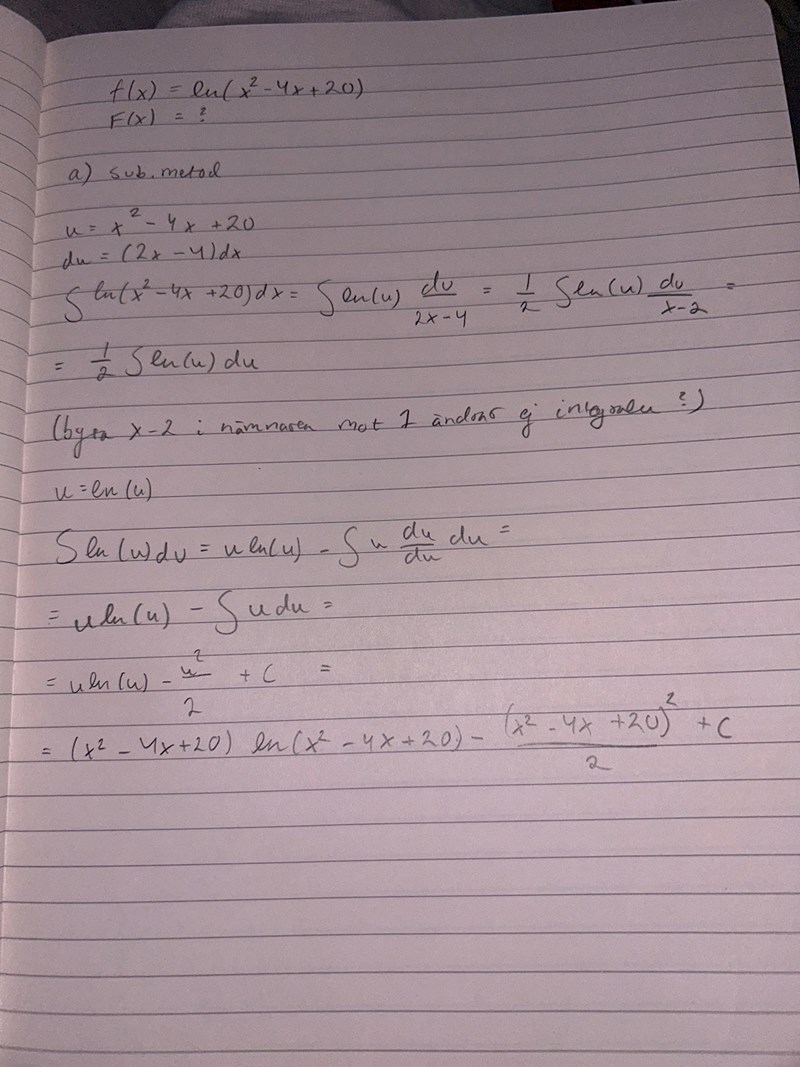 f(x) = ln(x² - 4x + 20)
F(x) = ?
a) sub.metod
u = x² - 4x + 20
du = (2x - 4)dx
∫ ln(x² - 4x + 20)dx = ∫ ln(u) du/(2x - 4) = 1/2 ∫ ln(u) du/(x - 2) =
= 1/2 ∫ ln(u) du
(byta x-2 i nämnaren mot 1 ändrar ej integralen ?)
u = ln(u)
∫ ln(u)du = u ln(u) - ∫ u du/du du =
= u ln(u) - ∫ u du =
= u ln(u) - u²/2 + C =
= (x² - 4x + 20) ln(x² - 4x + 20) - (x² - 4x + 20)²/2 + C